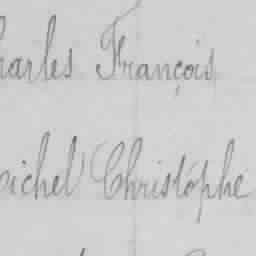 harles François
ichel Christophe